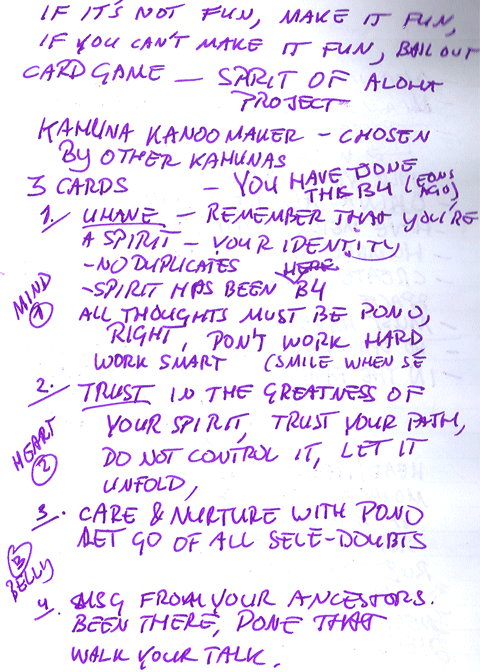 IF IT'S NOT FUN, MAKE IT FUN,
IF YOU CAN'T MAKE IT FUN, BAIL OUT
CARD GAME — SPIRIT OF ALOHA
PROJECT
KAHUNA KANOO MAKER — CHOSEN
BY OTHER KAHUNAS
3 CARDS — YOU HAVE DONE
THIS B4 (EONS
AGO)
1. UHANE — REMEMBER THAT YOU'RE
A SPIRIT — YOUR IDENTITY
- NO DUPLICATES HERE
- SPIRIT HAS BEEN B4
MIND
1
ALL THOUGHTS MUST BE PONO,
RIGHT, DON'T WORK HARD
WORK SMART (SMILE WHEN SE
2. TRUST IN THE GREATNESS OF
YOUR SPIRIT, TRUST YOUR PATH,
HEART
2
DO NOT CONTROL IT, LET IT
UNFOLD,
3. CARE & NURTURE WITH PONO
LET GO OF ALL SELF-DOUBTS
3
BELLY
4. MSG FROM YOUR ANCESTORS.
BEEN THERE, DONE THAT
WALK YOUR TALK.